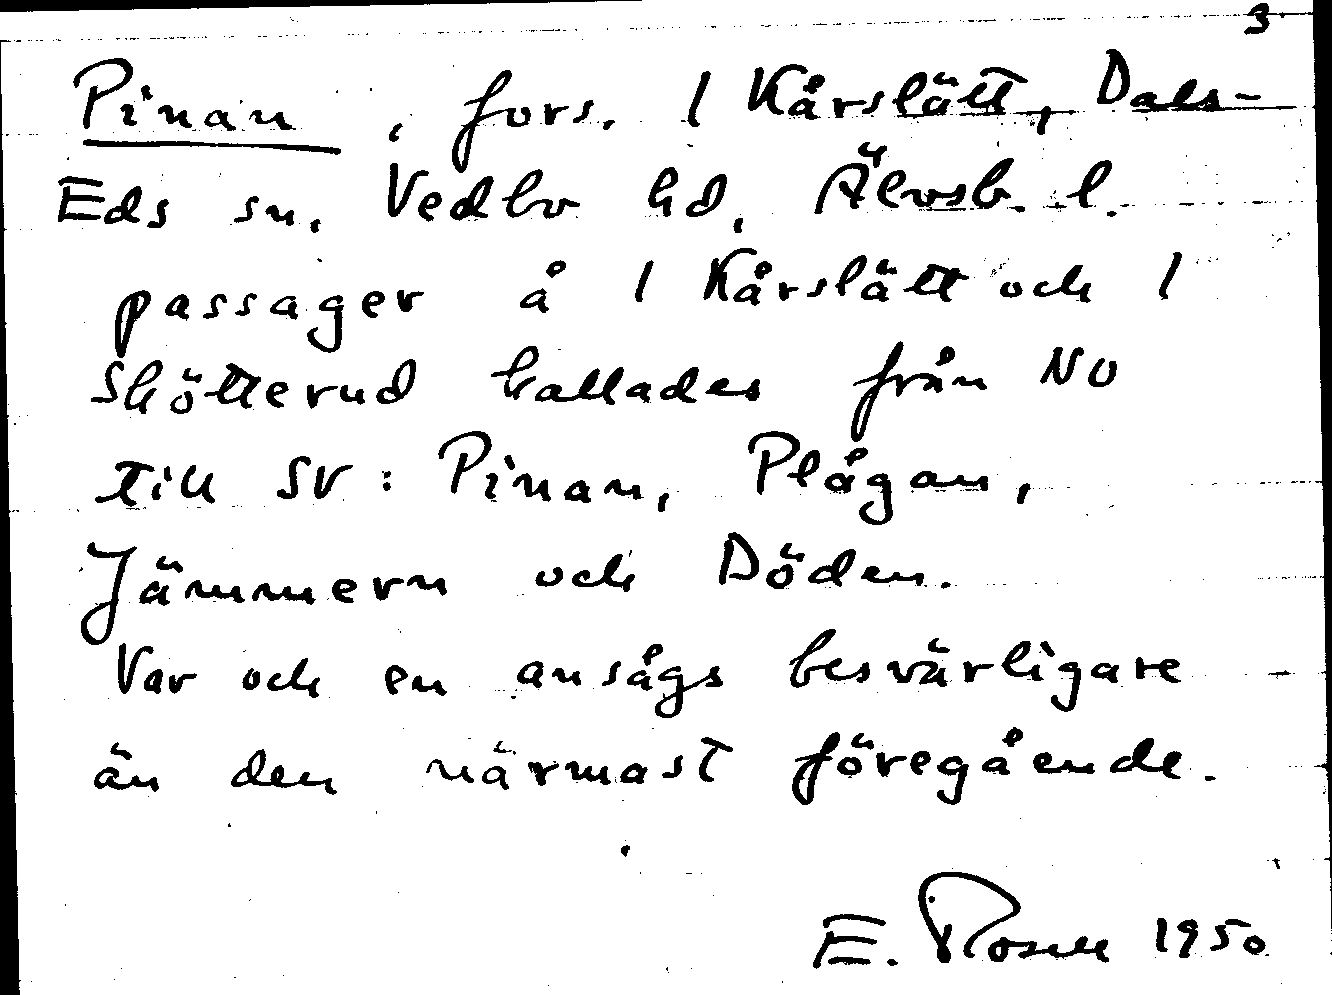 3
Pinan, fors. 1 Kårslätt, Dals-
Eds sn, Vedbo hd, Älvsb. l.
passager å 1 Kårslätt och 1
Skötterud kallades från NO
till SV: Pinan, Plågan,
Jämmern och Döden.
Var och en ansågs besvärligare
än den närmast föregående.
E. Rosell 1950